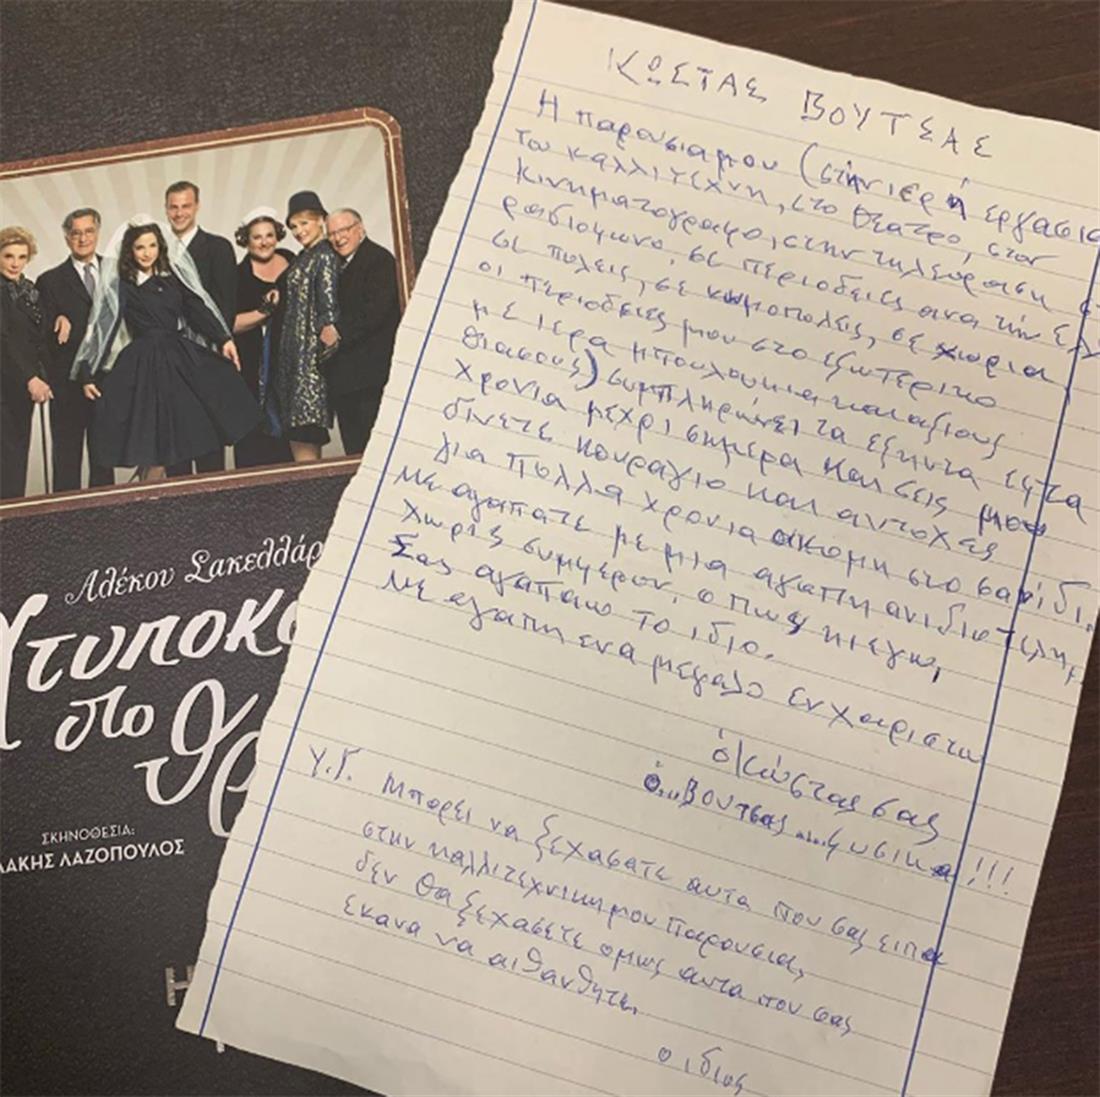 Αλέκου Σακελλάρ
Χτυποκά
στο
θρ
ΣΚΗΝΟΘΕΣΙΑ:
ΛΑΚΗΣ ΛΑΖΟΠΟΥΛΟΣ
Η
ΚΩΣΤΑΣ ΒΟΥΤΣΑΣ
Η παρουσια μου (στην ιερή εργασια
του καλλιτεχνη, στο θεατρο, στον
κινηματογραφο, στην τηλεοραση στ
ραδιοφωνο, σε περιοδειες ανα την Ελλ
σε πολεις, σε κωμοπολεις, σε χωρια
οι περιοδειες μου στο εξωτερικο
με ιερα μπουλουκια και αξιους
θιασους) συμπληρωνει τα εξηντα εφτα
χρονια μεχρι σημερα και σεις μου
δινετε κουραγιο και αντοχες
για πολλα χρονια ακομη στο σανιδι.
Με αγαπατε με μια αγαπη ανιδιοτελη,
χωρις συμφερον, οπως κι εγω,
Σας αγαπαω το ιδιο.
Με αγαπη ενα μεγαλο ευχαριστω
ό Κώστας σας
ό... Βουτσας .... φυσικα!!!
Υ.Γ. Μπορει να ξεχασατε αυτα που σας ειπα
στην καλλιτεχνικη μου παρουσια,
δεν θα ξεχασετε ομως αυτα που σας
εκανα να αισθανθητε.
ο ιδιος